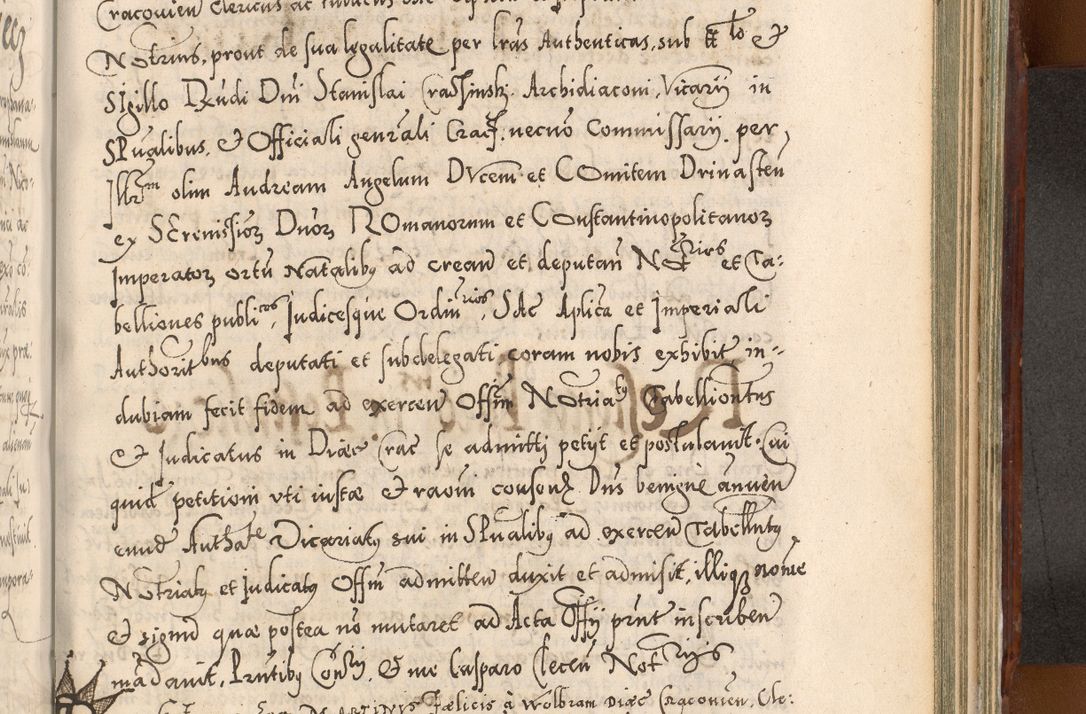 Cracovien Clericus ac
Notrius, prout de sua legalitate per lras Authenticas, sub tto et
Sigillo Rndi Dni Stanislai Crasinski Archidiaconi, Vicarÿ in
SPualibus, et Officiali genrali Crac: necnō Commissarÿ, per
Illrm olim Andream Angelum Ducem et Comitem Drinasten
ex Serenissior Dnor ROmanorum et Constantinopolitanor
Imperator ortū Natalibq ad creand et deputand Notrios et Ta:
belliones publicos, Iudicesque Ordinrios, SAc Aplica et Imperiali
Authoritbus deputati et subdelegati coram nobis exhibit, in=
dubiam fecit fidem ad exercen Offm Notriatq Tabelliontus
et Iudicatus in Diæc Crac se admitti petÿt et postulavit. Cui
quid petitioni vti iustæ et raōni consonæ Dns benigne anuen
eund Authate Vicariatq sui in SPualibq ad exercen Tabellntq
Notriatq et Iudicatq Offm admitten duxit et admisit, illiqz nome
et signū quæ postea nō mutaret ad Acta Offÿ prnt inscriben
mādavit, Prntibq Consÿ, et me Casparo Clecen Notrijs
MARTINVS Fælicis à Wolbram Diæc Cracovien, Cle: